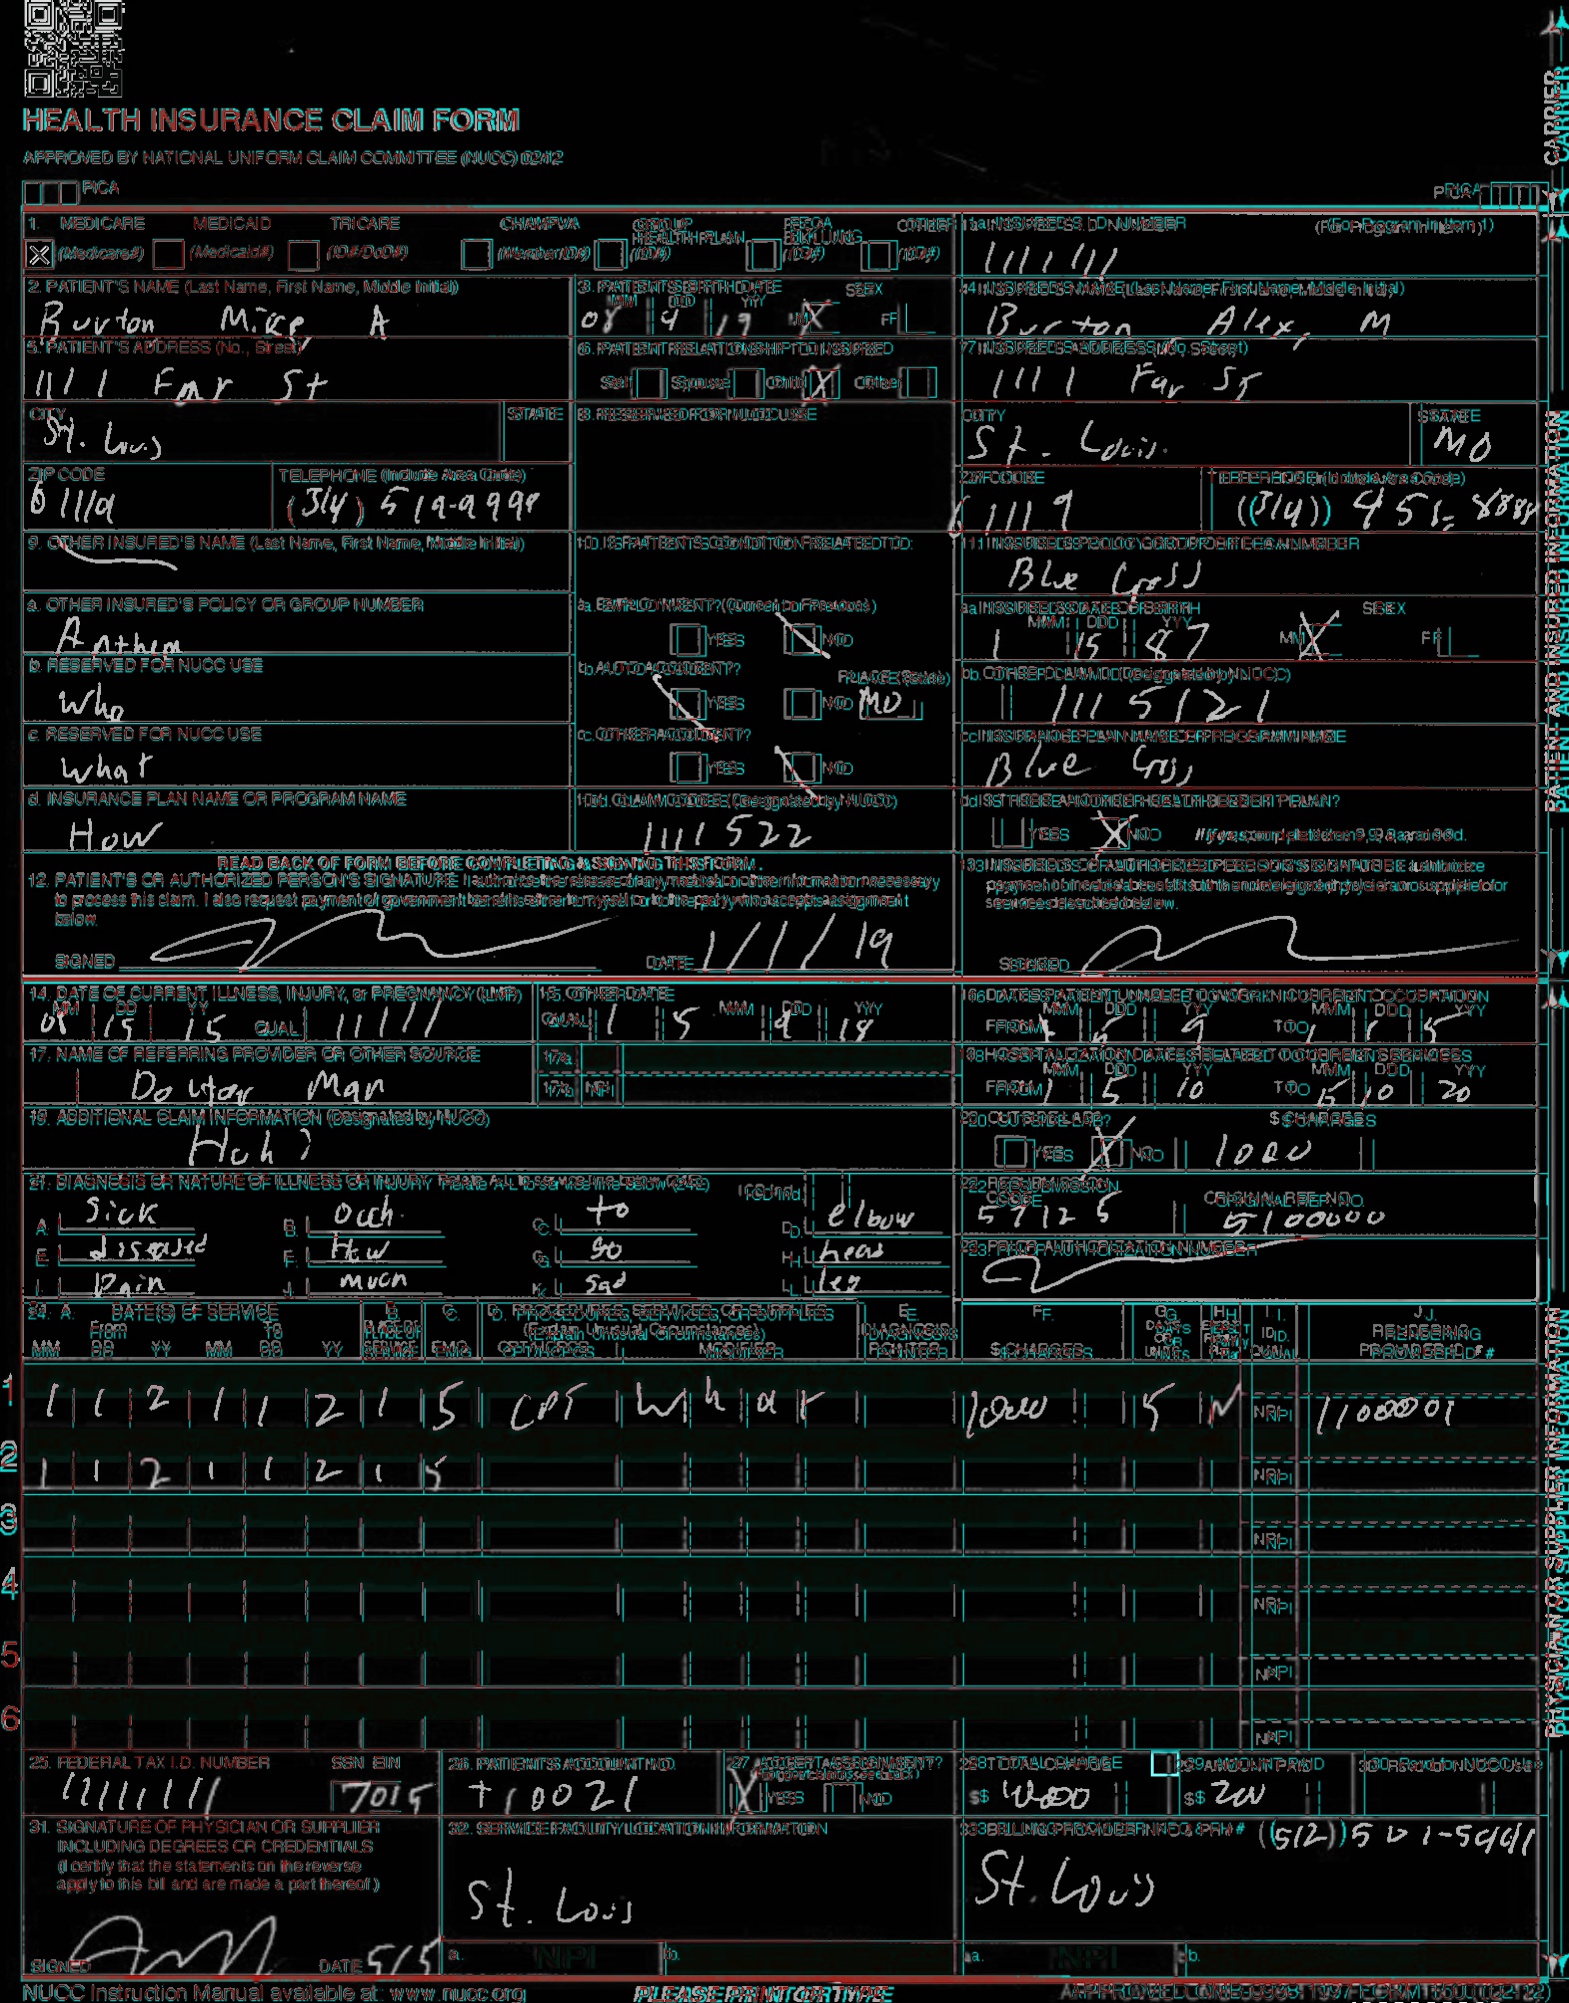 HEALTH INSURANCE CLAIM FORM
APPROVED BY NATIONAL UNIFORM CLAIM COMMITTEE (NUCC) 02/12
PICA
PICA
CARRIER
1. MEDICARE MEDICAID TRICARE CHAMPVA GROUP HEALTH PLAN FECA BLK LUNG OTHER
(Medicare#) (Medicaid#) (ID#/DoD#) (Member ID#) (ID#) (ID#) (ID#)
1a. INSURED'S I.D. NUMBER (For Program in Item 1)
1111111
2. PATIENT'S NAME (Last Name, First Name, Middle Initial)
Burton Mike A
3. PATIENT'S BIRTH DATE SEX
MM DD YY
08 9 19 M X F
4. INSURED'S NAME (Last Name, First Name, Middle Initial)
Burton Alex, M
5. PATIENT'S ADDRESS (No., Street)
1111 Far St
6. PATIENT RELATIONSHIP TO INSURED
Self Spouse Child X Other
7. INSURED'S ADDRESS (No., Street)
1111 Far St
CITY STATE
St. Louis
8. RESERVED FOR NUCC USE
CITY STATE
St. Louis. MO
ZIP CODE TELEPHONE (Include Area Code)
61119 (314) 519-9999
ZIP CODE TELEPHONE (Include Area Code)
61119 (314) 8888
9. OTHER INSURED'S NAME (Last Name, First Name, Middle Initial)
10. IS PATIENT'S CONDITION RELATED TO:
11. INSURED'S POLICY GROUP OR FECA NUMBER
Blue Cross
a. OTHER INSURED'S POLICY OR GROUP NUMBER
Anthem
a. EMPLOYMENT? (Current or Previous)
YES NO
a. INSURED'S DATE OF BIRTH SEX
MM DD YY
1 15 87 M X F
b. RESERVED FOR NUCC USE
Who
b. AUTO ACCIDENT? PLACE (State)
YES NO MO
b. OTHER CLAIM ID (Designated by NUCC)
1115121
c. RESERVED FOR NUCC USE
What
c. OTHER ACCIDENT?
YES NO
c. INSURANCE PLAN NAME OR PROGRAM NAME
Blue Cross
d. INSURANCE PLAN NAME OR PROGRAM NAME
How
10d. CLAIM CODES (Designated by NUCC)
1111522
d. IS THERE ANOTHER HEALTH BENEFIT PLAN?
YES X NO If yes, complete items 9, 9a, and 9d.
READ BACK OF FORM BEFORE COMPLETING & SIGNING THIS FORM.
12. PATIENT'S OR AUTHORIZED PERSON'S SIGNATURE I authorize the release of any medical or other information necessary
to process this claim. I also request payment of government benefits either to myself or to the party who accepts assignment
below.
SIGNED DATE 1/1/19
13. INSURED'S OR AUTHORIZED PERSON'S SIGNATURE I authorize
payment of medical benefits to the undersigned physician or supplier for
services described below.
SIGNED
PATIENT AND INSURED INFORMATION
14. DATE OF CURRENT ILLNESS, INJURY, or PREGNANCY (LMP)
MM DD YY
15 15 QUAL. 11111
15. OTHER DATE
QUAL. 1 5 MM DD YY 9 18
16. DATES PATIENT UNABLE TO WORK IN CURRENT OCCUPATION
MM DD YY MM DD YY
FROM 9 TO 5
17. NAME OF REFERRING PROVIDER OR OTHER SOURCE
Doctor Man
17a.
17b. NPI
18. HOSPITALIZATION DATES RELATED TO CURRENT SERVICES
MM DD YY MM DD YY
FROM 1 5 10 TO 15 10 20
19. ADDITIONAL CLAIM INFORMATION (Designated by NUCC)
Huh?
20. OUTSIDE LAB? $ CHARGES
YES X NO 1000
21. DIAGNOSIS OR NATURE OF ILLNESS OR INJURY Relate A-L to service line below (24E) ICD Ind.
A. Sick B. Ouch. C. to D. elbow
E. diseased F. How G. so H. head
I. Pain J. much K. sad L. leg
22. RESUBMISSION
CODE ORIGINAL REF. NO.
57125 5100000
23. PRIOR AUTHORIZATION NUMBER
24. A. DATE(S) OF SERVICE B. C. D. PROCEDURES, SERVICES, OR SUPPLIES E. F. G. H. I. J.
From To PLACE OF SERVICE EMG (Explain Unusual Circumstances) DIAGNOSIS POINTER $ CHARGES DAYS OR UNITS EPSDT Family Plan ID. QUAL. RENDERING PROVIDER ID. #
MM DD YY MM DD YY CPT/HCPCS MODIFIER
1 1 1 2 1 1 2 1 5 CPT W h a t 1000 5 N NPI 1100001
2 1 1 2 1 1 2 1 5 NPI
3 NPI
4 NPI
5 NPI
6 NPI
25. FEDERAL TAX I.D. NUMBER SSN EIN
11111111 7015
26. PATIENT'S ACCOUNT NO.
110021
27. ACCEPT ASSIGNMENT?
X YES NO
28. TOTAL CHARGE
$
29. AMOUNT PAID
$ 200
30. Rsvd for NUCC Use
31. SIGNATURE OF PHYSICIAN OR SUPPLIER
INCLUDING DEGREES OR CREDENTIALS
(I certify that the statements on the reverse
apply to this bill and are made a part thereof.)
SIGNED DATE 5/5
32. SERVICE FACILITY LOCATION INFORMATION
St. Louis
a. NPI b.
33. BILLING PROVIDER INFO & PH # (512)
St. Louis
a. NPI b.
PHYSICIAN OR SUPPLIER INFORMATION
NUCC Instruction Manual available at: www.nucc.org
PLEASE PRINT OR TYPE